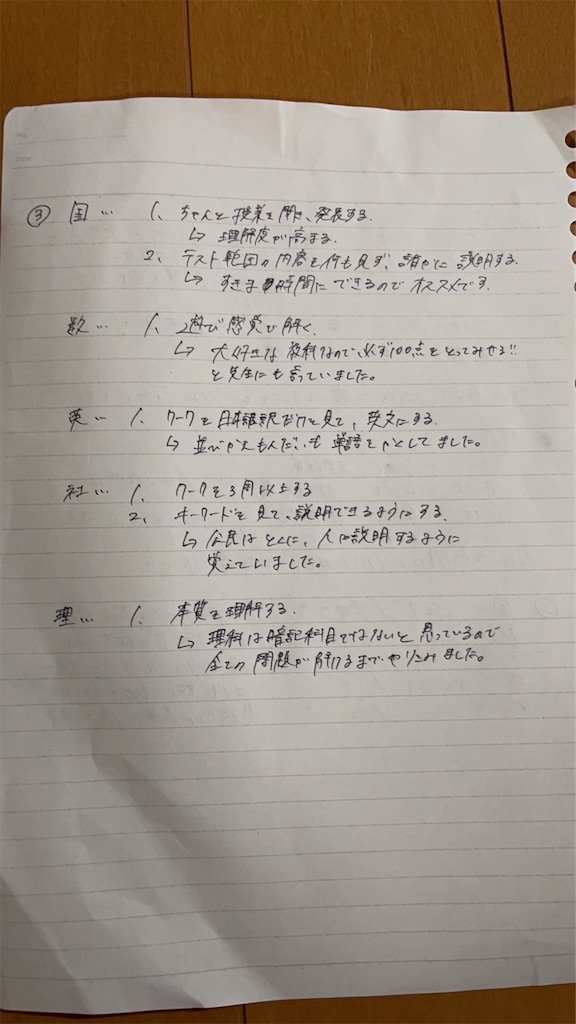 No.
Date
③ 国… 1. ちゃんと授業を聞き、発表する.
↳ 理解度が高まる.
2. テスト範囲の内容を何も見ず、誰かに説明する.
↳ すきま時間にできるのでオススメです.
数… 1. 遊び感覚で解く.
↳ 大好きな教科なので、必ず100点をとってみせる!!
と先生にも言っていました。
英… 1. ワークを日本語訳だけを見て、英文にする.
↳ 並びかえもんだいも単語をかとしてました。
社… 1. ワークを3周以上する
2. キーワードを見て、説明できるようにする.
↳ 公民はとくに、人に説明するように
覚えていました。
理… 1. 本質を理解する.
↳ 理科は暗記科目ではないと思っているので
全ての問題が解けるまでやりこみました。